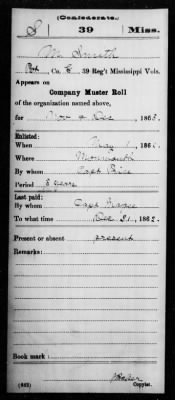 (Confederate.)
S 39 Miss.
Smith
Co. E, 39 Reg't Mississippi Vols.
Appears on
Company Muster Roll
of the organization named above,
for Nov & Dec, 186
Enlisted:
When May 1, 186
Where
By whom Capt
Period 3 years
Last paid:
By whom Capt
To what time Dec 31, 1862.
Present or absent present
Remarks:
Book mark:
(642)
Copyist.